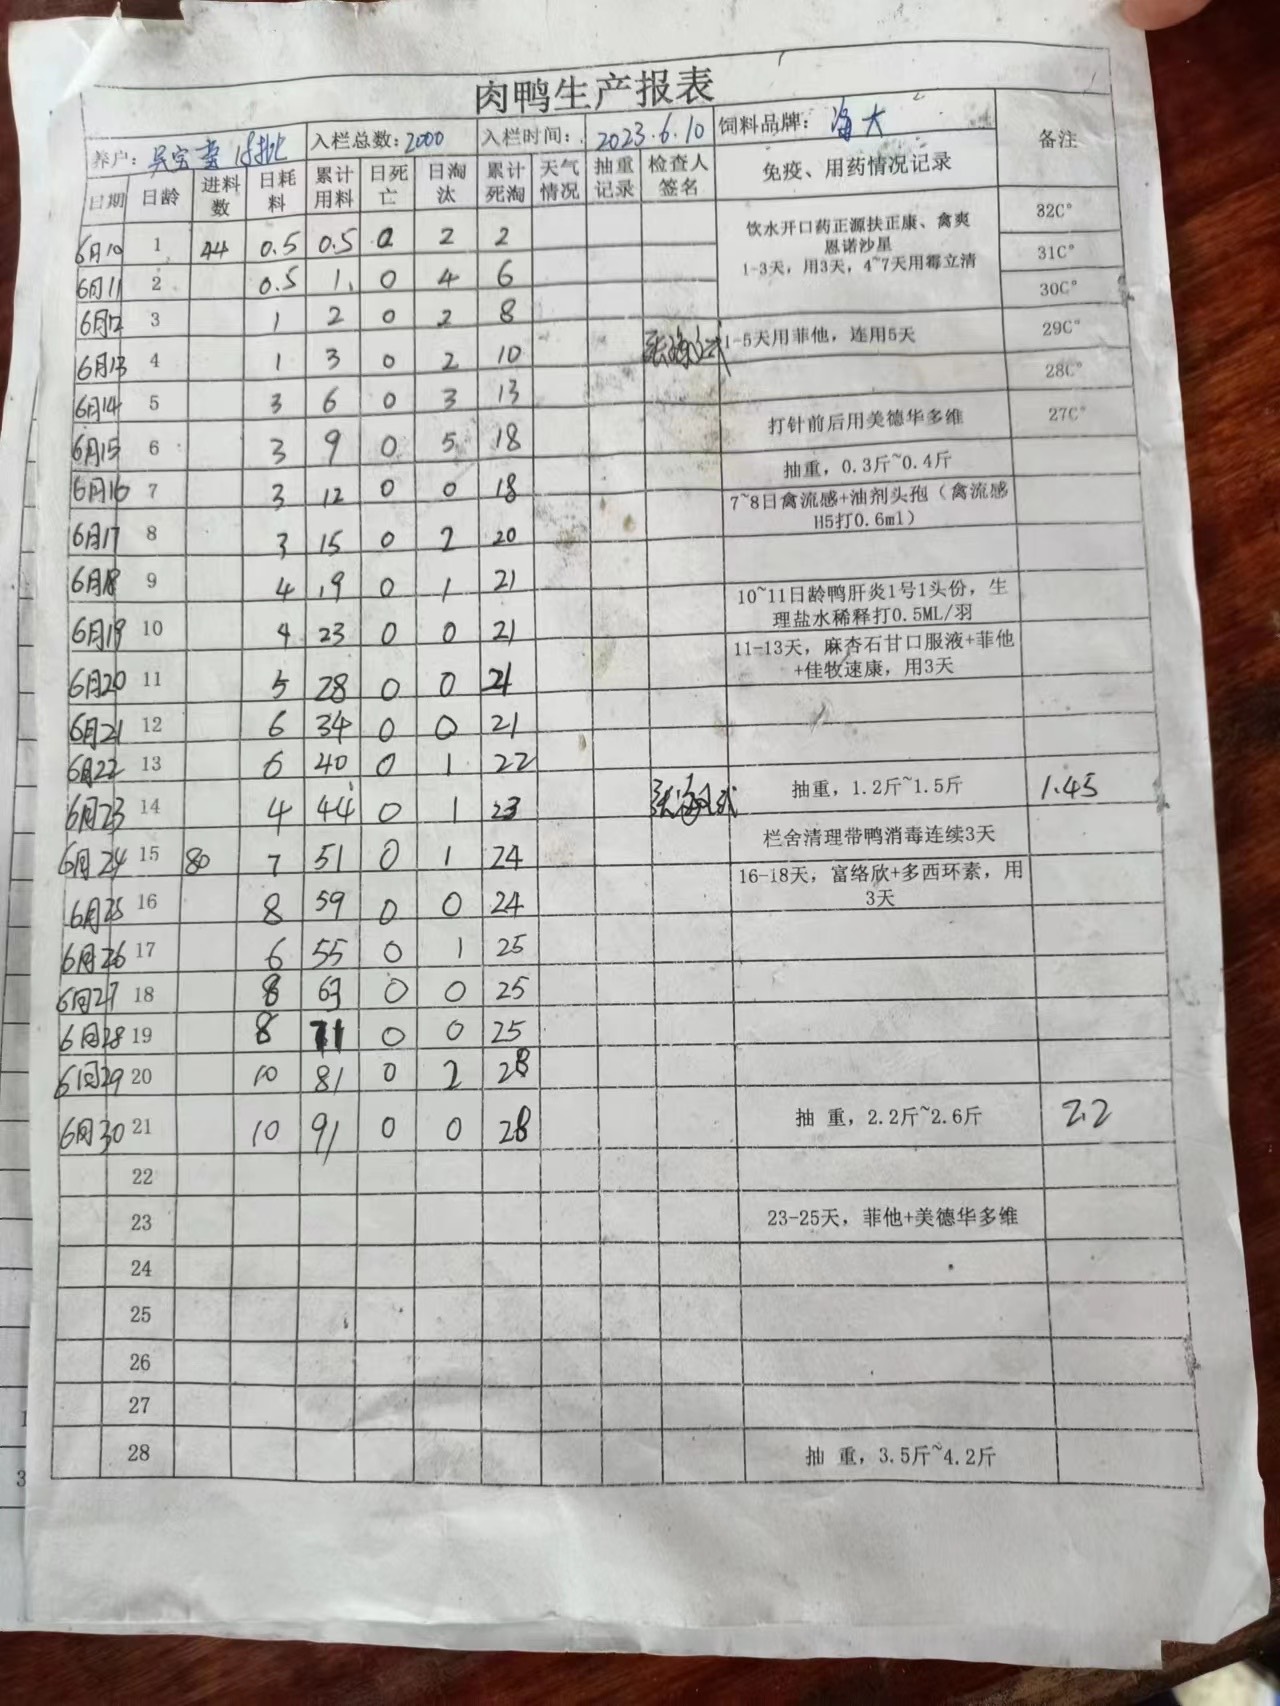 肉鸭生产报表
养户: 吴宝 批 入栏总数:2000 入栏时间: 2023.6.10 饲料品牌: 海大 备注
日期 日龄 进料数 日耗料 累计用料 日死亡 日淘汰 累计死淘 天气情况 抽重记录 检查人签名 免疫、用药情况记录
6月10 1 44 0.5 0.5 0 2 2 32C°
饮水开口药正源扶正康、禽爽
恩诺沙星
1-3天，用3天，4~7天用霉立清
6月11 2 0.5 1 0 4 6 31C°
6月12 3 1 2 0 2 8 30C°
6月13 4 1 3 0 2 10 1-5天用菲他，连用5天 29C°
6月14 5 3 6 0 3 13 28C°
6月15 6 3 9 0 5 18 打针前后用美德华多维 27C°
6月16 7 3 12 0 0 18 抽重，0.3斤~0.4斤
6月17 8 3 15 0 2 20 7~8日禽流感+油剂头孢（禽流感
H5打0.6ml）
6月18 9 4 19 0 1 21
6月19 10 4 23 0 0 21 10~11日龄鸭肝炎1号1头份，生
理盐水稀释打0.5ML/羽
6月20 11 5 28 0 0 21 11-13天，麻杏石甘口服液+菲他
+佳牧速康，用3天
6月21 12 6 34 0 0 21
6月22 13 6 40 0 1 22
6月23 14 4 44 0 1 23 抽重，1.2斤~1.5斤 1.45
6月24 15 80 7 51 0 1 24 栏舍清理带鸭消毒连续3天
6月25 16 8 59 0 0 24 16-18天，富络欣+多西环素，用
3天
6月26 17 6 55 0 1 25
6月27 18 8 63 0 0 25
6月28 19 8 71 0 0 25
6月29 20 10 81 0 2 28
6月30 21 10 91 0 0 28 抽 重，2.2斤~2.6斤 2.2
22
23 23-25天，菲他+美德华多维
24
25
26
27
28 抽 重，3.5斤~4.2斤